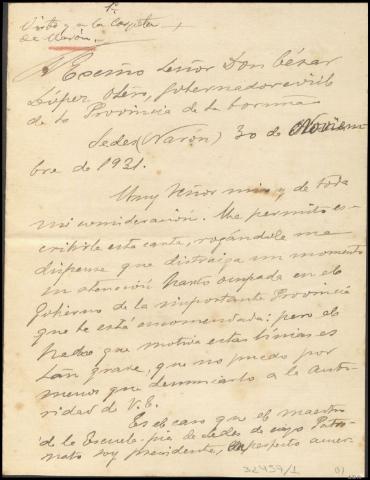 1º
Visto y a la Carpeta
de Narón.
Excmo Señor Don César
López Otero, Gobernador civil
de la Provincia de la Coruña
Sedes (Narón) 30 de Noviem
bre de 1931.
Muy Señor mio y de toda
mi consideración. Me permito es-
cribirle esta carta, rogándole me
dispense que distraiga un momento
su atención harto ocupada en el
Gobierno de la importante Provincia
que le está encomendada: pero el
hecho que motiva estas líneas es
tan grave, que no puedo por
menos que denunciarlo a la Auto-
ridad de V. E.
Es el caso que el maestro
de la Escuela-pía de Sedes de cuyo Patro-
nato soy presidente, respecto
32459/1
01